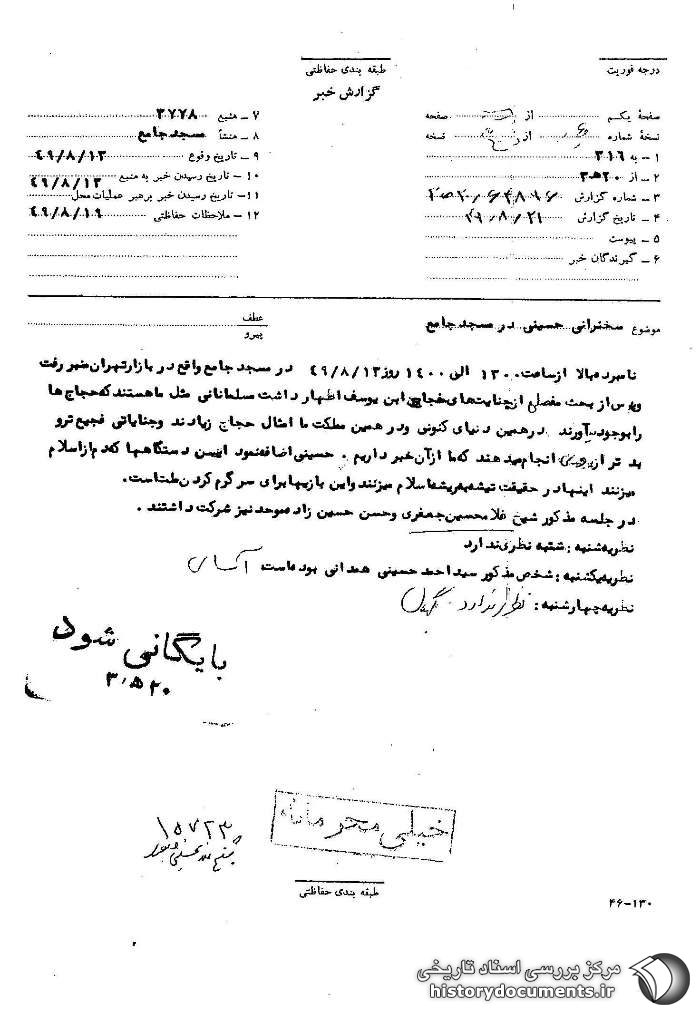 طبقه بندی حفاظتی
درجه فوریت
گزارش خبر
صفحهٔ یکم از صفحه
نسخهٔ شماره از نسخه
۱ ـ به ۳۱۶
۲ ـ از ۲۰ﻫ۳
۳ ـ شماره گزارش
۴ ـ تاریخ گزارش ۴۹/۸/۲۱
۵ ـ پیوست
۶ ـ گیرندگان خبر
۷ ـ منبع ۳۷۷۸
۸ ـ منشأ مسجد جامع
۹ ـ تاریخ وقوع ۴۹/۸/۱۳
۱۰ ـ تاریخ رسیدن خبر به منبع ۴۹/۸/۱۳
۱۱ ـ تاریخ رسیدن خبر برهبر عملیات محل
۱۲ ـ ملاحظات حفاظتی ۴۹/۸/۱۹
موضوع سخنرانی حسینی در مسجد جامع
عطف
پیرو
نامبرده بالا از ساعت ۱۳۰۰ الی ۱۴۰۰ روز ۴۹/۸/۱۳ در مسجد جامع واقع در بازار تهران منبر رفت
و پس از بحث مفصلی از جنایت‌های حجاج ابن یوسف اظهار داشت مسلمانانی مثل ما هستند که حجاج ها
را بوجود میآورند در همین دنیای کنونی و در همین مملکت ما امثال حجاج زیادند و جنایاتی فجیع تر و
بد تر از انجام میدهند که ما از آن خبر داریم . حسینی اضافه نمود این دستگاهها که دم از اسلام
میزنند اینها در حقیقت تیشه بریشه اسلام میزنند و این بازیها برای سر گرم کردن ملت است.
در جلسه مذکور شیخ غلامحسین جعفری و حسن حسین زاده موحد نیز شرکت داشتند .
نظریه شنبه : شنبه نظری ندارد
نظریه یکشنبه : شخص مذکور سید احمد حسینی همدانی بوده است
نظریه چهارشنبه : نظری ندارد
بایگانی شود
۲۰ﻫ۳
خیلی محرمانه
۱۵۷۲۳
طبقه بندی حفاظتی
۴۶-۱۳۰
مرکز بررسی اسناد تاریخی
historydocuments.ir